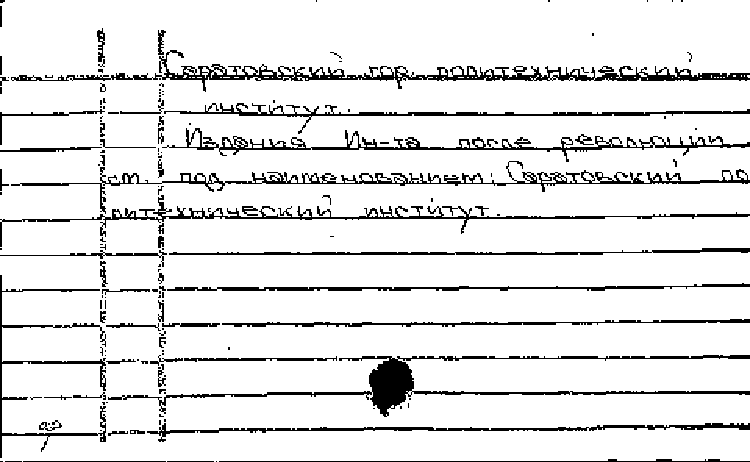 Саратовский гор. политехнический
институт.
Издания Ин-та после революции
см. под наименованием: Саратовский по
литехнический институт.